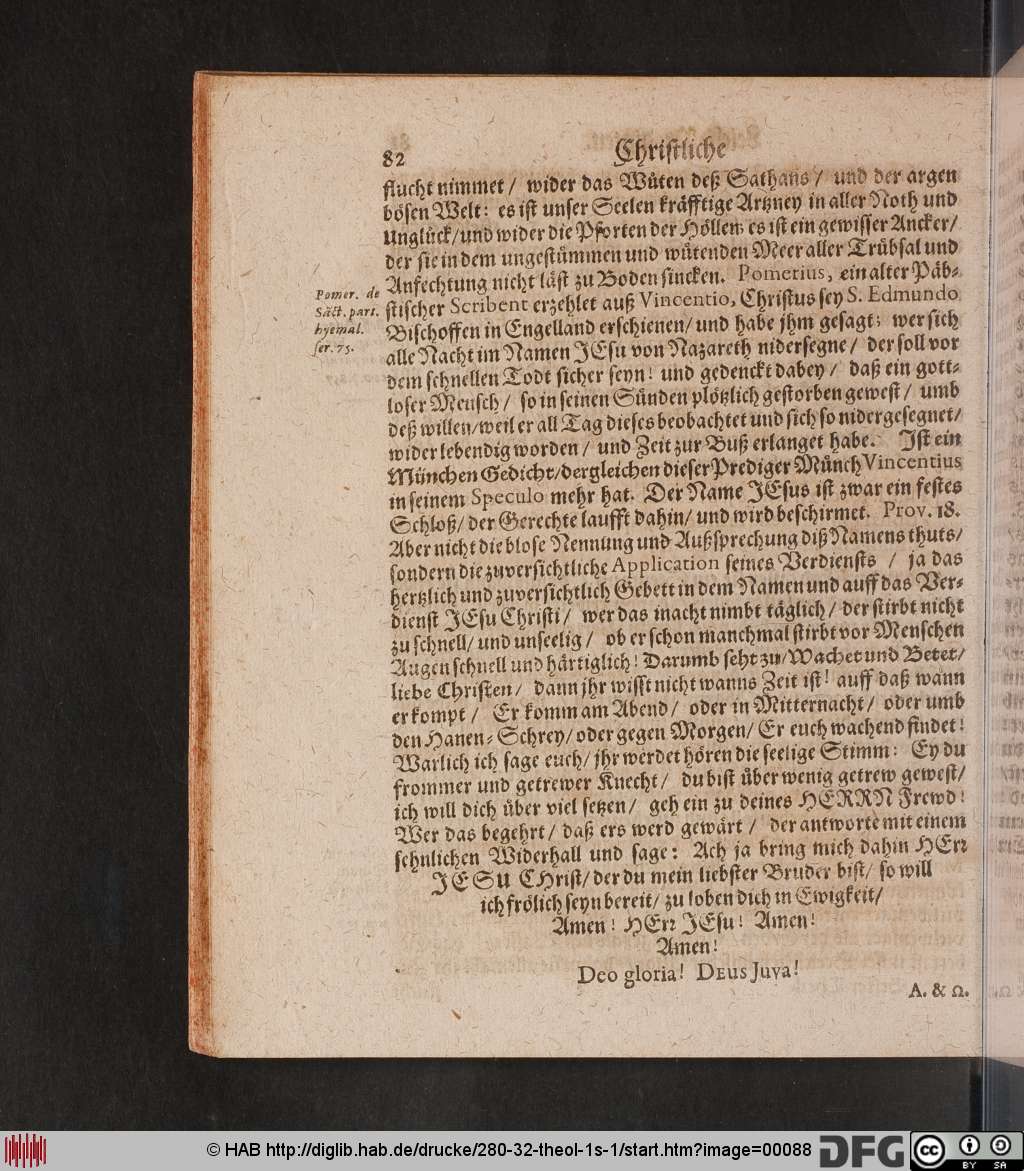 82 Christliche
flucht nimmet / wider das Wüten deß Sathans / und der argen
bösen Welt: es ist unser Seelen kräfftige Artzney in aller Noth und
Unglück / und wider die Pforten der Höllen; es ist ein gewisser Ancker /
der sie in dem ungestümmen und wütenden Meer aller Trübsal und
Anfechtung nicht läst zu Boden sincken. Pomerius, ein alter Päb⸗
stischer Scribent erzehlet auß Vincentio, Christus sey S. Edmundo
Bischoffen in Engelland erschienen / und habe jhm gesagt; wer sich
alle Nacht im Namen JEsu von Nazareth nidersegne / der soll vor
dem schnellen Todt sicher seyn! und gedenckt dabey / daß ein gott⸗
loser Mensch / so in seinen Sünden plötzlich gestorben gewest / umb
deß willen / weil er all Tag dieses beobachtet und sich so nidergesegnet /
wider lebendig worden / und Zeit zur Buß erlanget habe. Ist ein
München Gedicht / dergleichen dieser Prediger Münch Vincentius
in seinem Speculo mehr hat. Der Name JEsus ist zwar ein festes
Schloß / der Gerechte laufft dahin / und wird beschirmet. Prov. 18.
Aber nicht die blose Nennung und Außsprechung diß Namens thuts /
sondern die zuversichtliche Application seines Verdiensts / ja das
hertzlich und zuversichtlich Gebett in dem Namen und auff das Ver⸗
dienst JEsu Christi / wer das inacht nimbt täglich / der stirbt nicht
zu schnell / und unseelig / ob er schon manchmal stirbt vor Menschen
Augen schnell und härtiglich! Darumb seht zu / Wachet und Betet /
liebe Christen / dann jhr wisst nicht wanns Zeit ist! auff daß wann
er kompt / Er komm am Abend / oder in Mitternacht / oder umb
den Hanen⸗Schrey / oder gegen Morgen / Er euch wachend findet!
Warlich ich sage euch / jhr werdet hören die seelige Stimm: Ey du
frommer und getrewer Knecht / du bist über wenig getrew gewest /
ich will dich über viel setzen / geh ein zu deines HERRN Frewd!
Wer das begehrt / daß ers werd gewärt / der antworte mit einem
sehnlichen Widerhall und sage: Ach ja bring mich dahin HErr
JESU CHrist / der du mein liebster Bruder bist / so will
ich frölich seyn bereit / zu loben dich in Ewigkeit /
Amen! HErr JEsu! Amen!
Amen!
Deo gloria! DEUS Juva!
A. & Ω.
Pomer. de
Säct. part.
hyemal.
ser. 75.
© HAB http://diglib.hab.de/drucke/280-32-theol-1s-1/start.htm?image=00088
DFG
cc
BY SA